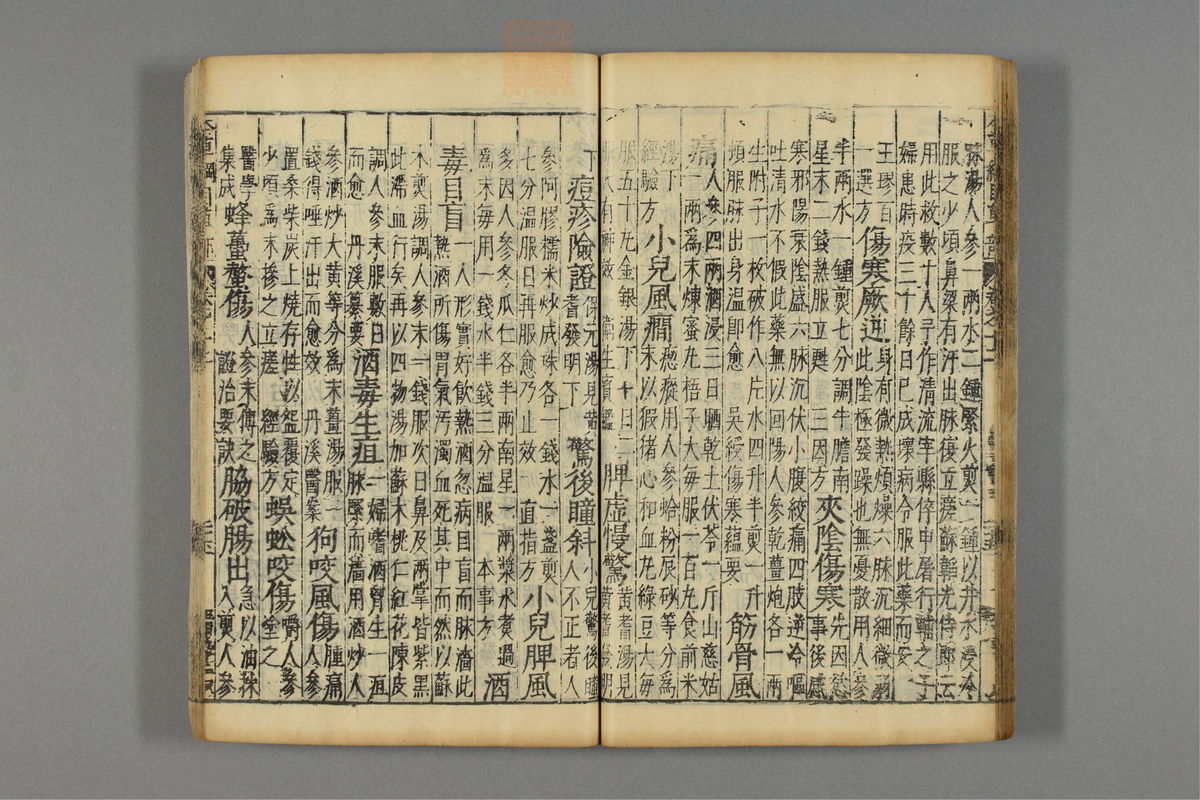 蘇湯人參一兩水二鍾緊火煎一鍾以井水浸冷
服之少頃鼻梁有汗出脉復立瘥蘇韜光侍郎云
用此救數十人予作清流宰縣倅申屠行輔之子
婦患時疫三十餘日已成壞病令服此藥而安
王璆百一選方
傷寒厥逆
身有微熱煩燥六脉沉細微弱
此陰極發躁也無憂散用人參
半兩水一鍾煎七分調牛膽南
星末二錢熱服立甦 三因方
夾陰傷寒
先因慾
事後感
寒邪陽衰陰盛六脉沉伏小腹絞痛四肢逆冷嘔
吐清水不假此藥無以回陽人參乾薑炮各一兩
生附子一枚破作八片水四升半煎一升
頓服脉出身溫即愈 吳綬傷寒蘊要
筋骨風
痛
人參四兩酒浸三日晒乾土伏苓一斤山慈姑
一兩爲末煉蜜丸梧子大每服一百丸食前米
湯下
經驗方
小兒風癇
瘛瘲用人參蛤粉辰砂等分爲
末以猳猪心和血丸綠豆大每
服五十丸金銀湯下一日二
服大有神效 衛生寶鑑
脾虛慢驚
黃耆湯見
黃耆發明
下
痘疹險證
保元湯見黃
耆發明下
驚後瞳斜
小兒驚後瞳
人不正者人
參阿膠糯米炒成珠各一錢水一盞煎
七分溫服日再服愈乃止效 直指方
小兒脾風
多因人參冬瓜仁各半兩南星一兩漿水煮過
爲末每用一錢水半錢三分溫服 本事方
酒
毒目盲
一人形實好飲熱酒忽病目盲而脉濇此
熱酒所傷胃氣污濁血死其中而然以蘇
木煎湯調人參末一錢服次日鼻及兩掌皆紫黑
此滯血行矣再以四物湯加蘇木桃仁紅花陳皮
調人參末服數日
而愈 丹溪纂要
酒毒生疽
一婦嗜酒胷生一疽
脉緊而濇用酒炒人
參酒炒大黃等分爲末薑湯服一
錢得唾汗出而愈效 丹溪醫案
狗咬風傷
腫痛
人參
置桑柴炭上燒存性以盌覆定
少頃爲末摻之立瘥 經驗方
蜈蚣咬傷
嚼人參
塗之
醫學
集成
蜂蠆螫傷
人參末傅之
證治要訣
脇破腸出
急以油抹
入煎人參